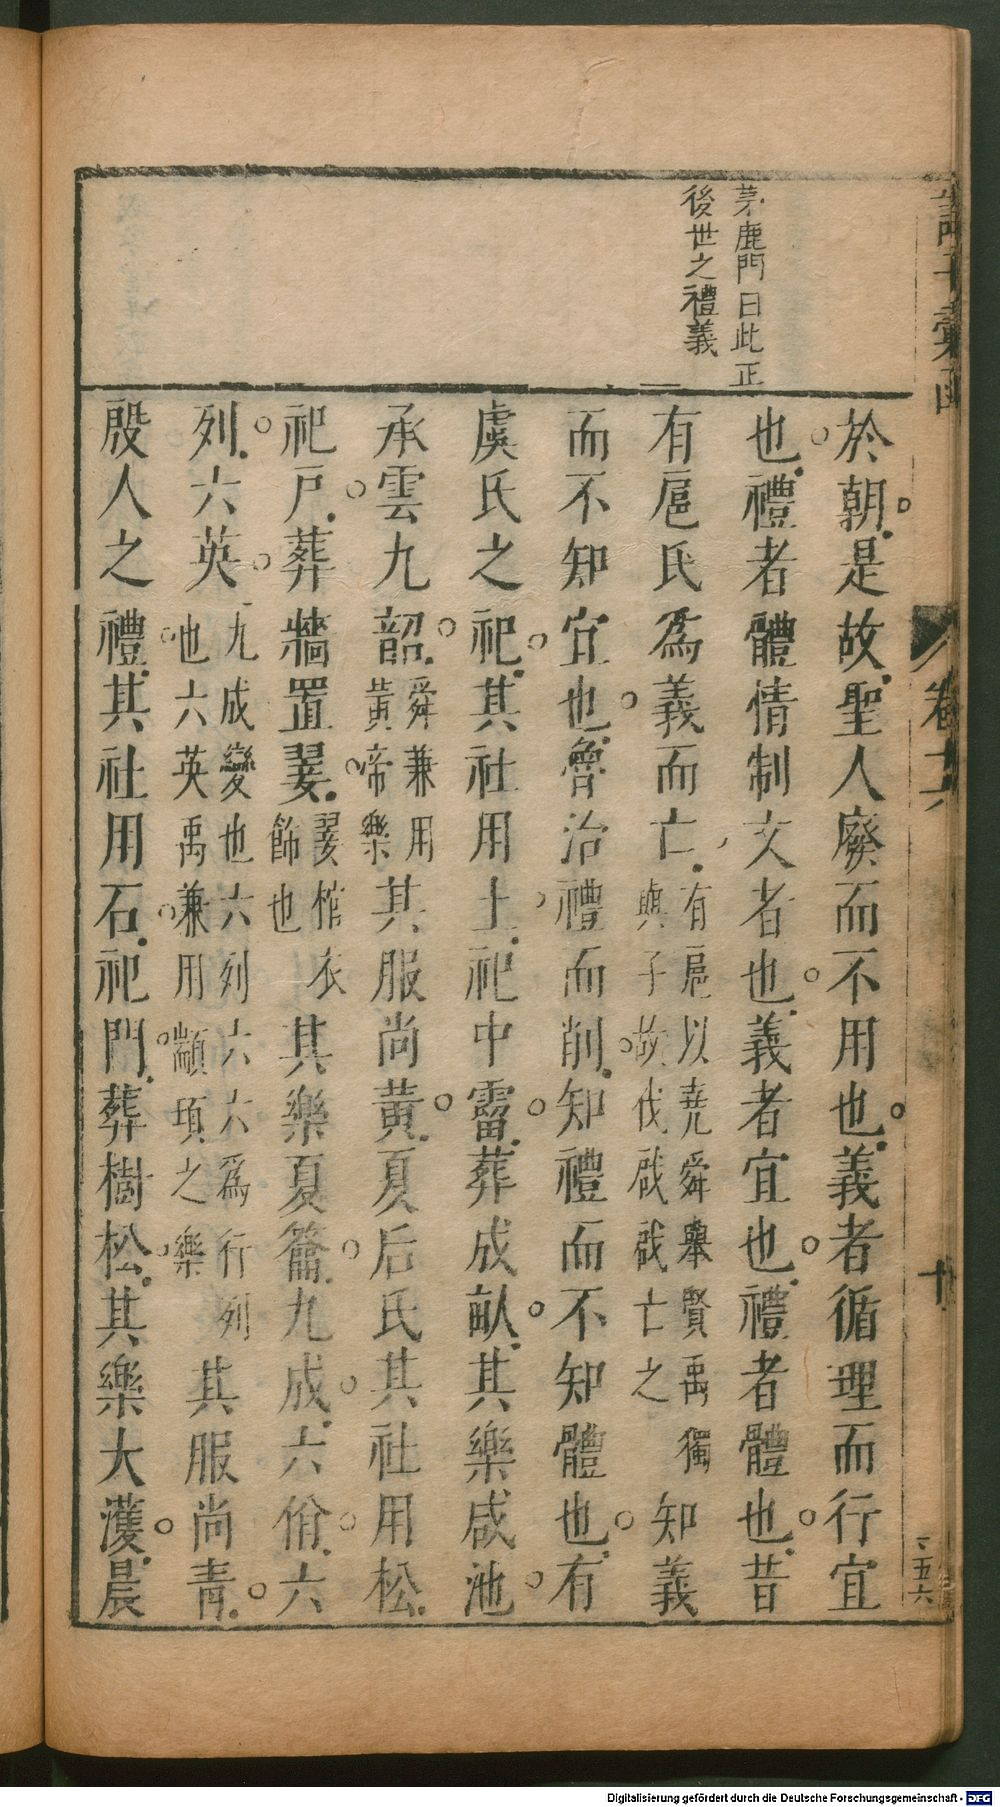 茅鹿門曰此正
後世之禮義
於朝是故聖人廢而不用也義者循理而行宜
也禮者體情制文者也義者宜也禮者體也昔
有扈氏爲義而亡有扈以堯舜舉賢禹獨與子故伐啟啟亡之知義
而不知宜也魯治禮而削知禮而不知體也有
虞氏之祀其社用土祀中霤葬成畝其樂咸池
承雲九韶舜兼用黃帝樂其服尚黃夏后氏其社用松
祀戶葬牆置翣翣棺衣飾也其樂夏籥九成六佾六
列六英九成變也六列六六爲行列也六英禹兼用顓頊之樂其服尚青
殷人之禮其社用石祀門葬樹松其樂大濩晨
彙函
卷十六
五六
Digitalisierung gefördert durch die Deutsche Forschungsgemeinschaft - DFG